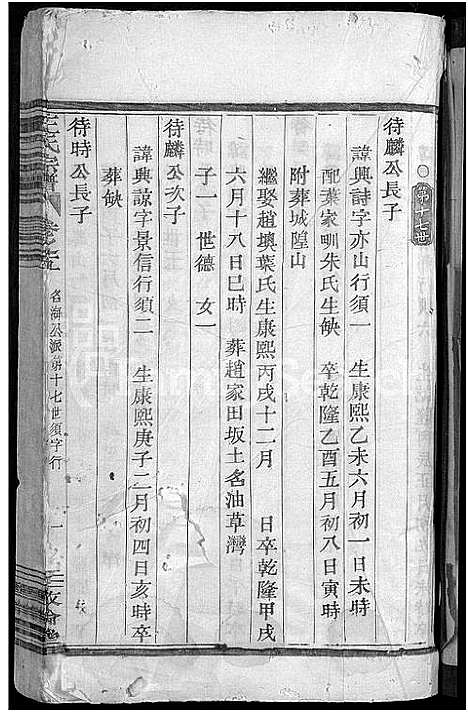 第十七世
待麟公長子
諱興詩字亦山行須一 生康熙乙未六月初一日未時
配葉家㘭朱氏生缺 卒乾隆乙酉五月初八日寅時
附葬城隍山
繼娶趙墺葉氏生康熙丙戌十二月 日卒乾隆甲戌
六月十八日巳時 葬趙家田坂土名油草灣
子一 世德 女一
待麟公次子
諱興諒字景信行須二 生康熙庚子二月初四日亥時卒
葬缺
待時公長子
王氏宗譜 卷之
名海公派第十七世須字行
一